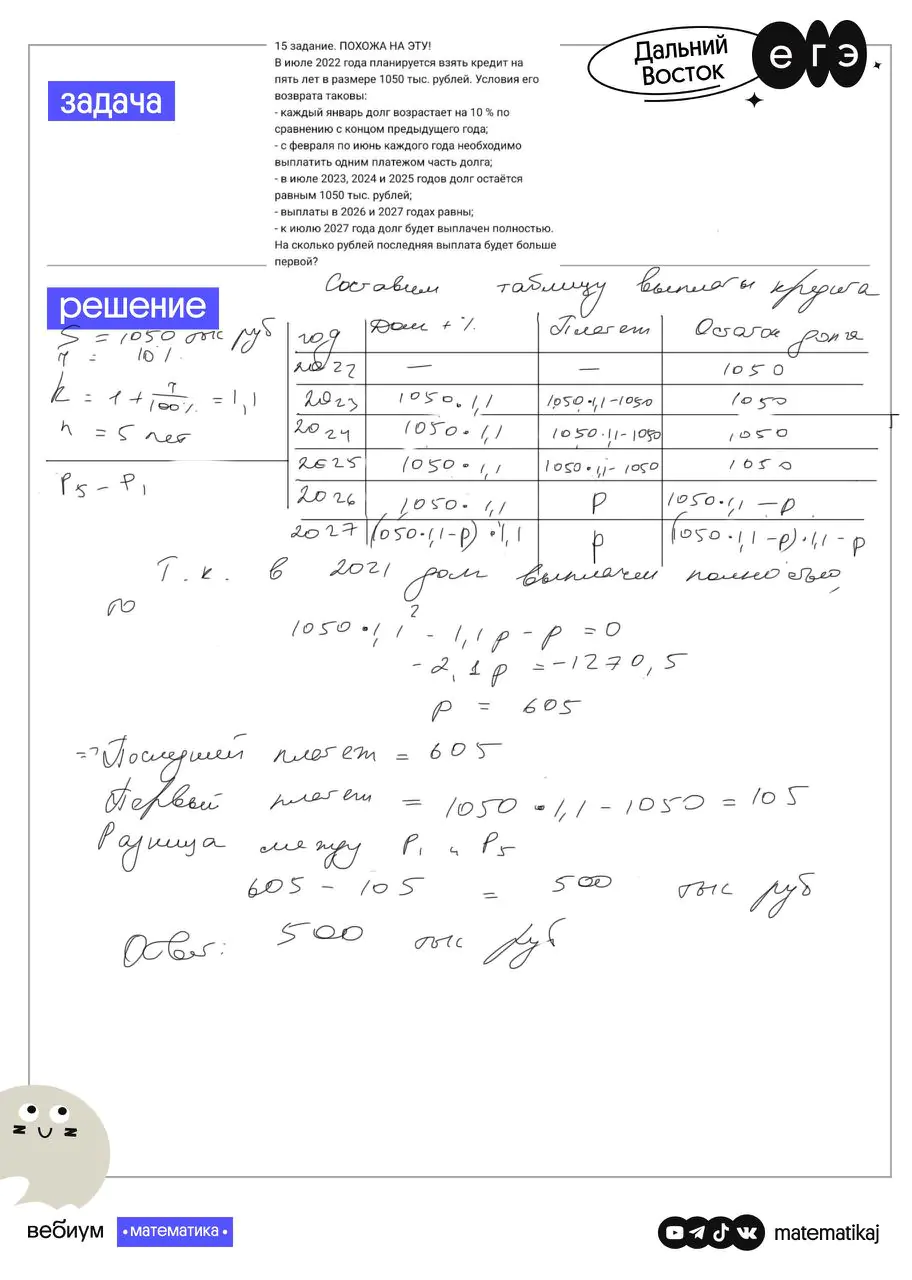 15 задание. ПОХОЖА НА ЭТУ!
В июле 2022 года планируется взять кредит на
пять лет в размере 1050 тыс. рублей. Условия его
возврата таковы:
- каждый январь долг возрастает на 10 % по
сравнению с концом предыдущего года;
- с февраля по июнь каждого года необходимо
выплатить одним платежом часть долга;
- в июле 2023, 2024 и 2025 годов долг остаётся
равным 1050 тыс. рублей;
- выплаты в 2026 и 2027 годах равны;
- к июлю 2027 года долг будет выплачен полностью.
На сколько рублей последняя выплата будет больше
первой?
Дальний
Восток
егэ
задача
решение
Составим таблицу выплаты кредита
S = 1050 тыс руб
r = 10%
k = 1 + r/100% = 1,1
n = 5 лет
P5 - P1
год Долг + % Платеж Остаток долга
2022 — — 1050
2023 1050·1,1 1050·1,1-1050 1050
2024 1050·1,1 1050·1,1-1050 1050
2025 1050·1,1 1050·1,1-1050 1050
2026 1050·1,1 P 1050·1,1-P
2027 (1050·1,1-P)·1,1 P (1050·1,1-P)·1,1-P
Т.к. в 2021 долг выплачен полностью,
то
1050·1,1² - 1,1P - P = 0
-2,1P = -1270,5
P = 605
=> Последний платеж = 605
Первый платеж = 1050·1,1-1050 = 105
Разница между P1 и P5
605 - 105 = 500 тыс руб
Ответ: 500 тыс руб
вебиум
• математика •
matematikaj